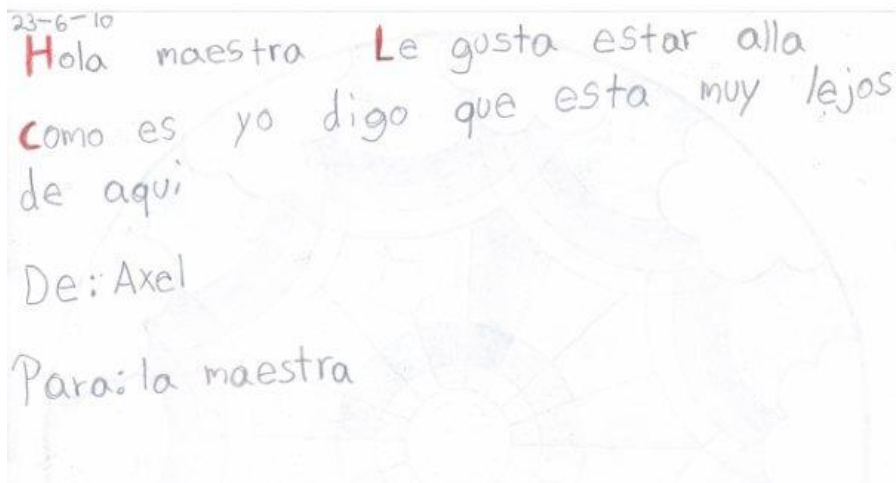 23-6-10
Hola maestra Le gusta estar alla
como es yo digo que esta muy lejos
de aqui
De: Axel
Para: la maestra